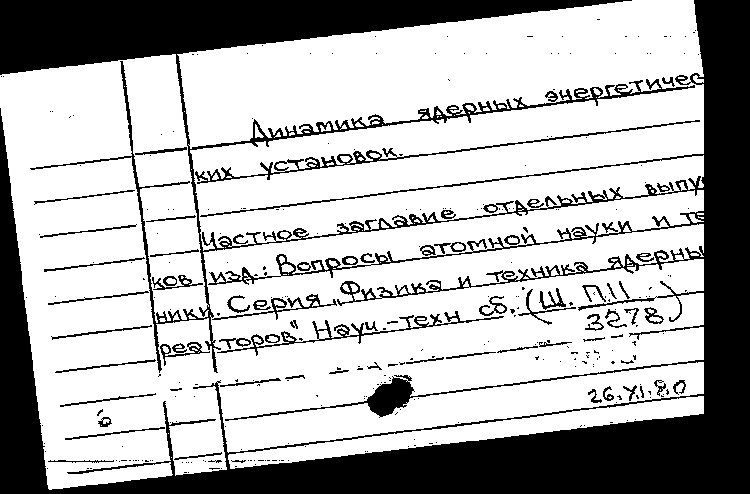 Динамика ядерных энергетичес
ких установок.
Частное заглавие отдельных выпус
ков изд.: Вопросы атомной науки и те
ники. Серия „Физика и техника ядерны
реакторов". Науч.-техн сб. (Ш. П11
3278)
26.XI.80
б